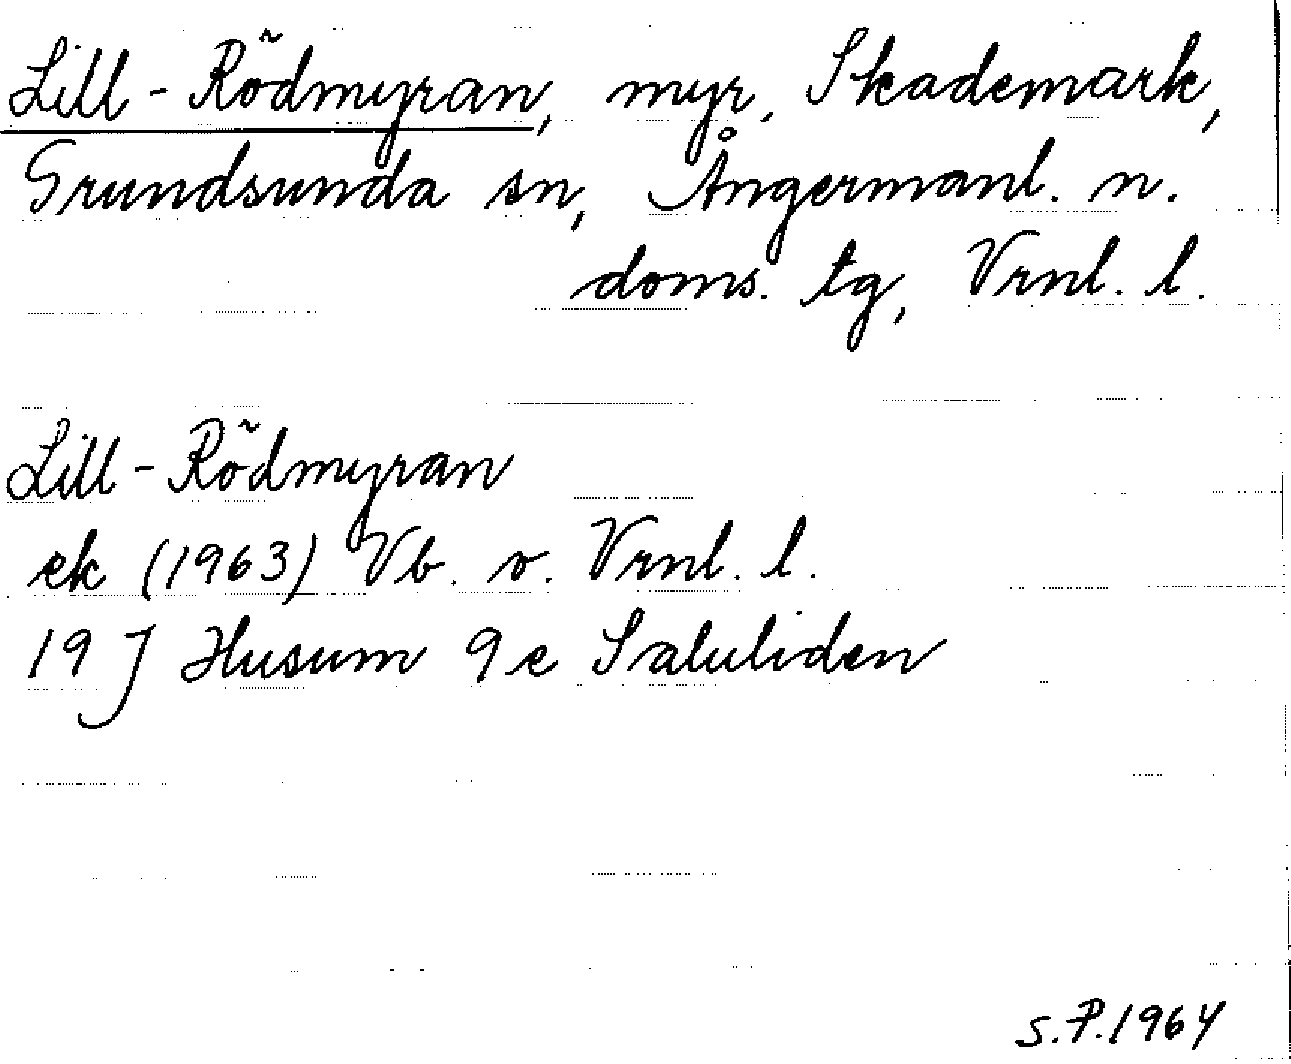 Lill-Rödmyran, myr, Skademark,
Grundsunda sn, Ångermanl. n.
doms. tg, Vrnl. l.
Lill-Rödmyran
ek (1963) Vb. o. Vrnl. l.
19 J Husum 9e Saluliden
S.P.1964